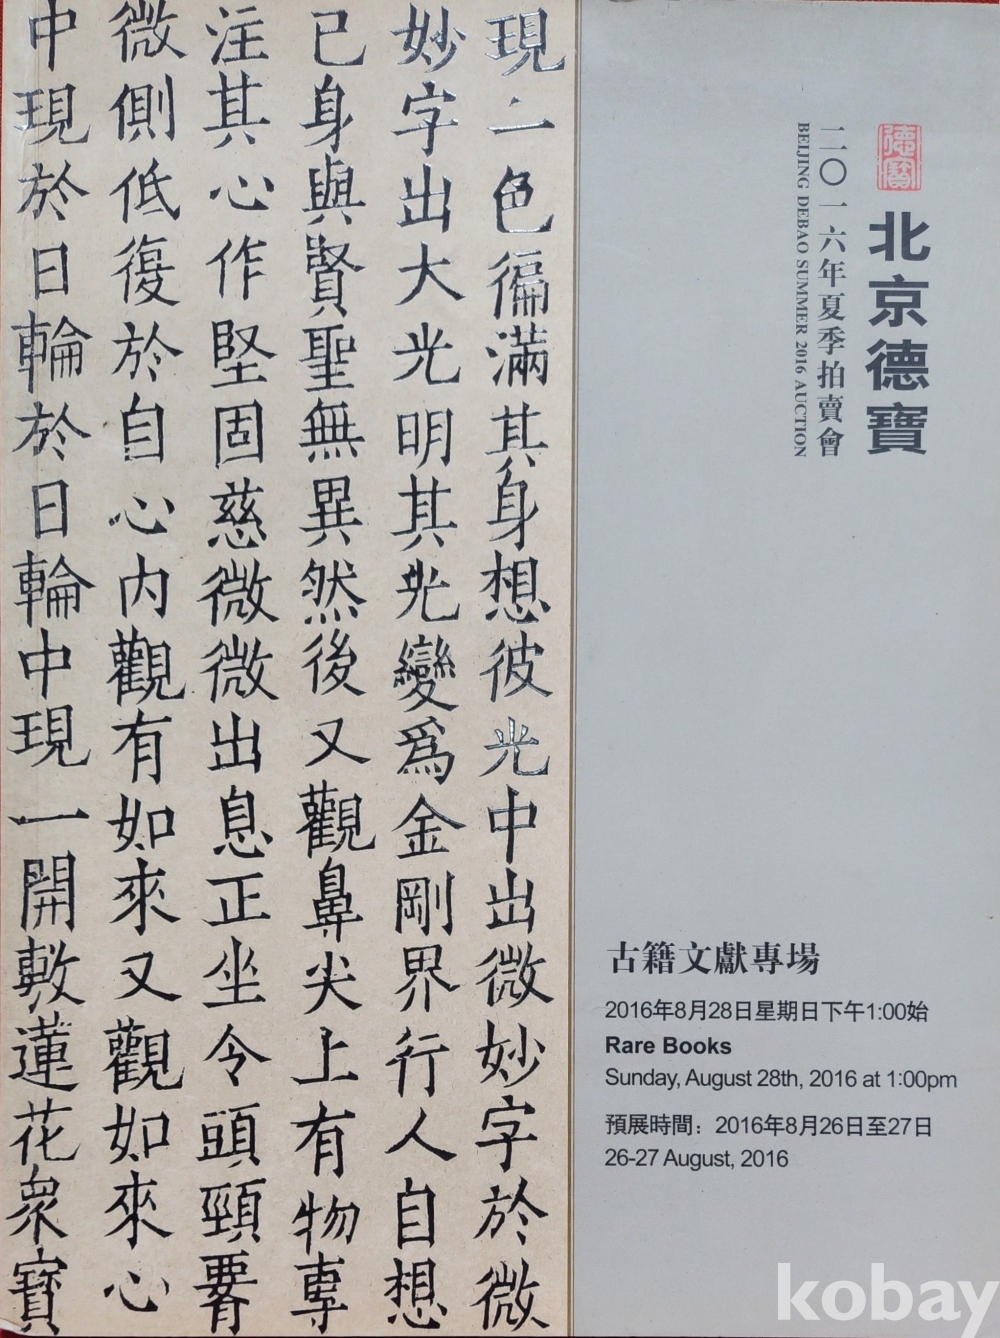 現一色徧滿其身想彼光中出微妙字於微
妙字出大光明其光變爲金剛界行人自想
已身與賢聖無異然後又觀鼻尖上有物專
注其心作堅固慈微微出息正坐令頭頸要
微側低復於自心内觀有如來又觀如來心
中現於日輪於日輪中現一開敷蓮花衆寶
德寶
北京德寶
二〇一六年夏季拍賣會
BEIJING DEBAO SUMMER 2016 AUCTION
古籍文獻專場
2016年8月28日星期日下午1:00始
Rare Books
Sunday, August 28th, 2016 at 1:00pm
預展時間：2016年8月26日至27日
26-27 August, 2016
kobay